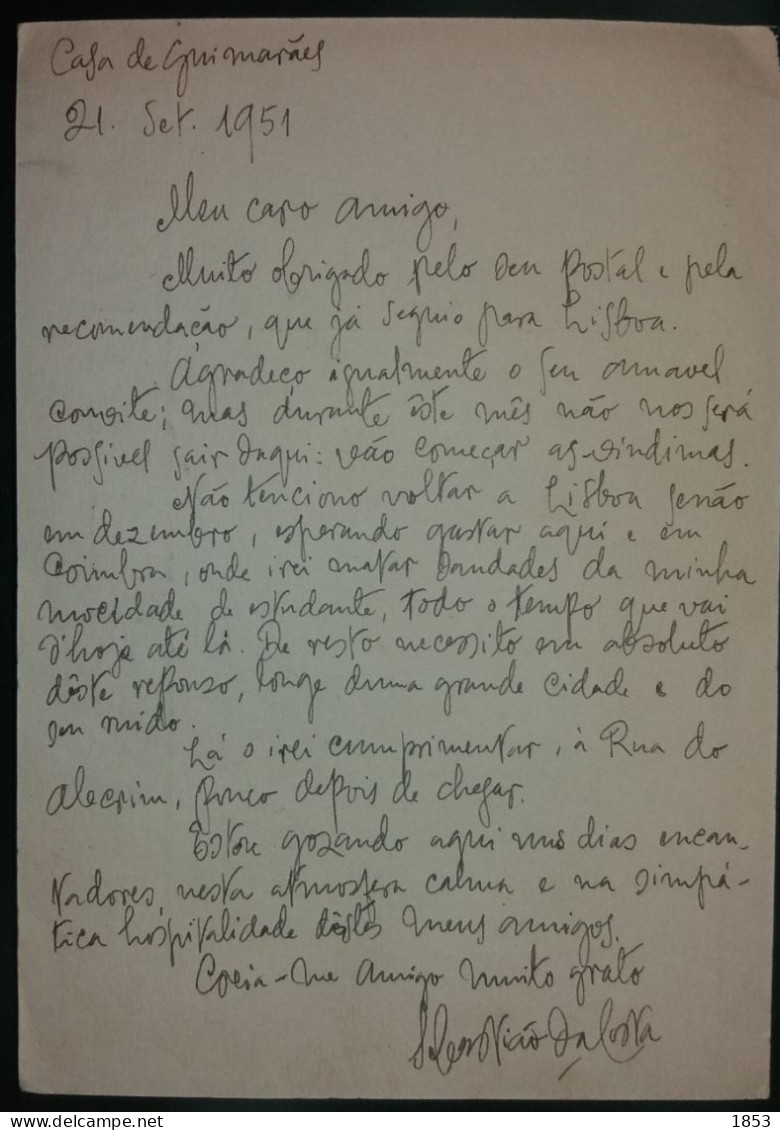 Casa de Guimarães
21. Set. 1951
Meu caro amigo,
Muito obrigado pelo seu postal e pela
recomendação, que já seguio para Lisboa.
Agradeço igualmente o seu amavel
convite; mas durante êste mês não nos será
possivel sair daqui: vão começar as vindimas.
Não tenciono voltar a Lisboa senão
em dezembro, esperando gastar aqui e em
Coimbra, onde irei matar saudades da minha
mocidade de estudante, todo o tempo que vai
d'hoje até lá. De resto necessito em absoluto
dêste repouso, longe duma grande cidade e do
seu ruido.
Lá o irei cumprimentar, à Rua do
Alecrim, pouco depois de chegar.
Estou gozando aqui uns dias encan-
tadores, nesta atmosfera calma e na simpá-
tica hospitalidade dêstes meus amigos.
Creia-me amigo muito grato
Sebastião da Costa
1853